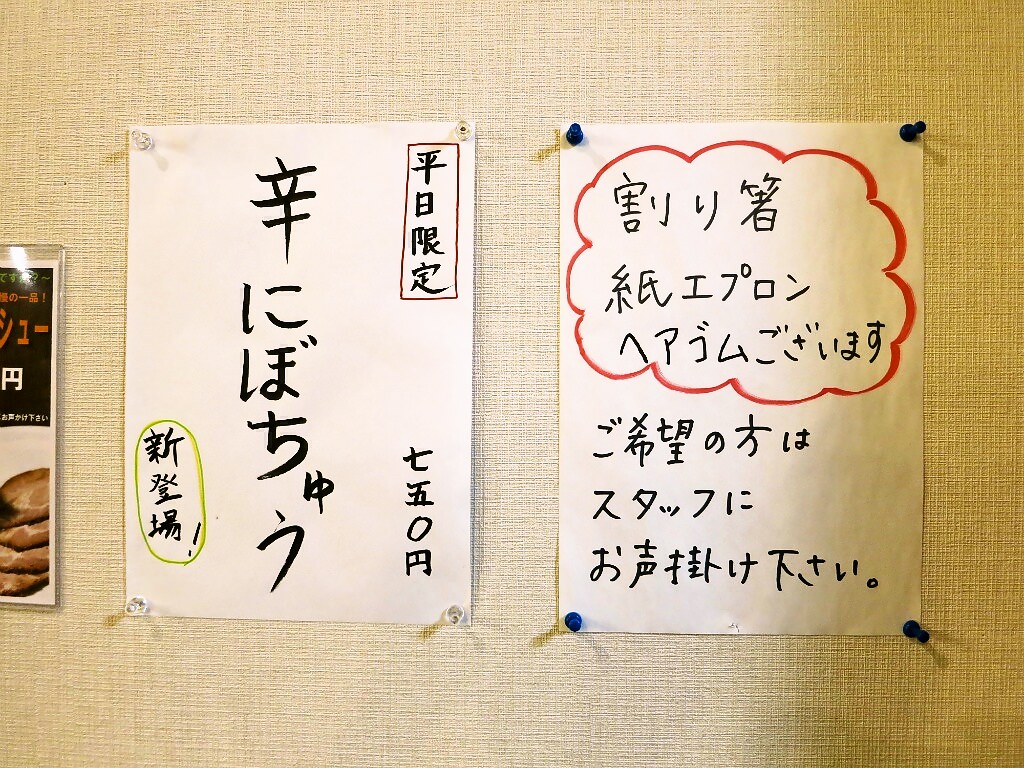 平日限定
七五〇円
辛にぼちゅう
新登場!
割り箸
紙エプロン
ヘアゴムございます
ご希望の方は
スタッフに
お声掛け下さい。
ですか?~
慢の一品!
シュー
円
お声かけ下さい